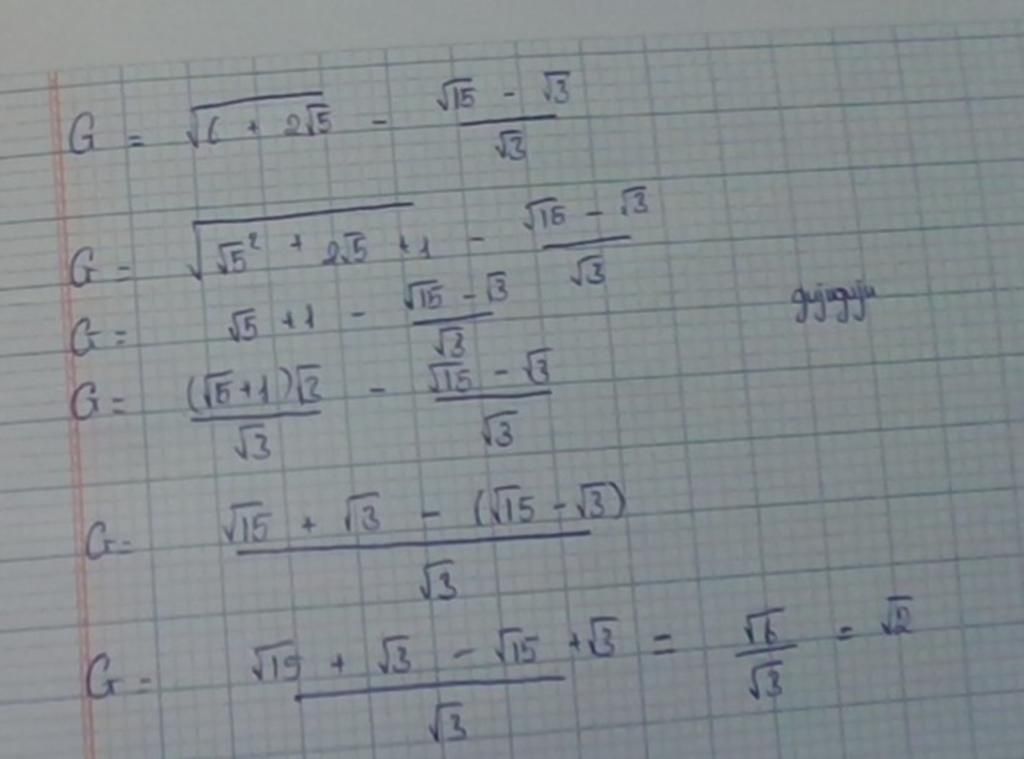 G = √(6 + 2√5) - (√15 - √3)/√3
G = √(√5² + 2√5 + 1) - (√15 - √3)/√3
G = √5 + 1 - (√15 - √3)/√3
gujuguju
G = (√5+1)√3/√3 - (√15 - √3)/√3
G = (√15 + √3 - (√15 - √3))/√3
G = (√15 + √3 - √15 + √3)/√3 = √6/√3 = √2